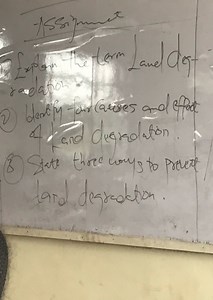 Assignment
Explain the term Land deg-
radation
② Identify causes and effect
of Land degradation.
③ State three ways to prevent
land degradation.